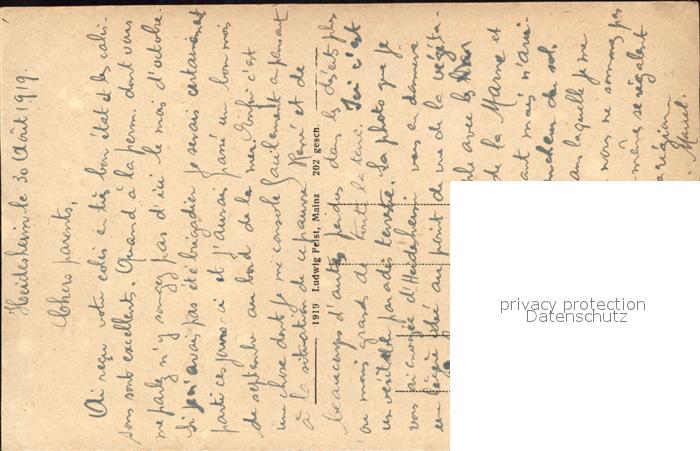 Heidesheim le 30 Août 1919.
Chers parents,
Ai reçu votre colis en très bon état et les cais-
sons sont excellents. Quand à la perm. dont vous
me parlez n'y songez pas d'ici le mois d'octobre.
Si je n'avais pas été brigadier je serais certainement
parti ces jours-ci et j'aurais passé un bon mois
de septembre au bord de la mer. Enfin c'est
une chose dont je me console facilement en pensant
à la situation de ce pauvre René et de
beaucoup d'autres perdus dans les déserts plus
ou moins grands de toute la terre. Ici c'est
un véritable paradis terrestre. La photo que je
vous ai envoyée d'Heidesheim vous en donnera
une idée au point de vue de la végéta-
avec les
de la Marne et
mais n'a
du sol.
laquelle je me
nous ne sommes pas
-même se régalent
région
Marcel.
1919 Ludwig Feist, Mainz 202 gesch.
privacy protection
Datenschutz